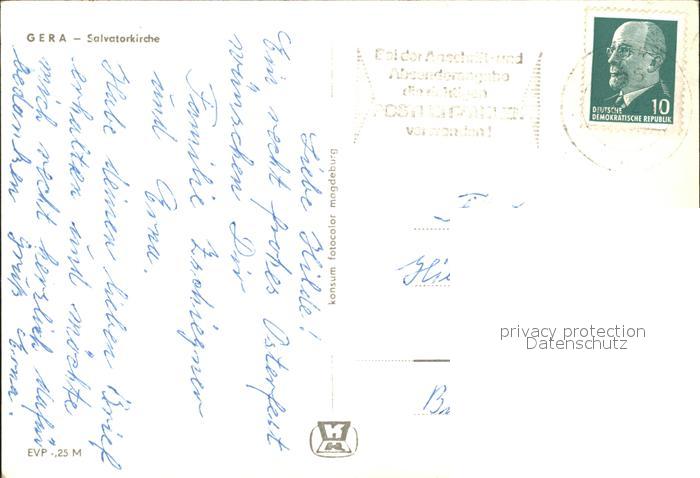 GERA – Salvatorkirche
Liebe Hilde!
Ein recht frohes Osterfest
wünschen Dir
Familie
und Erna.
Habe deinen lieben Brief
erhalten und möchte
mich recht herzlich dafür
bedanken Gruß Erna.
EVP -,25 M
konsum fotocolor magdeburg
Bei der Anschrift und
Absenderangabe
die richtigen
POSTLEITZAHLEN
verwenden!
DEUTSCHE
DEMOKRATISCHE REPUBLIK
10
privacy protection
Datenschutz